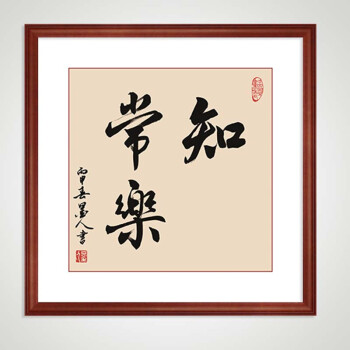 知
常樂
丙申春墨人書